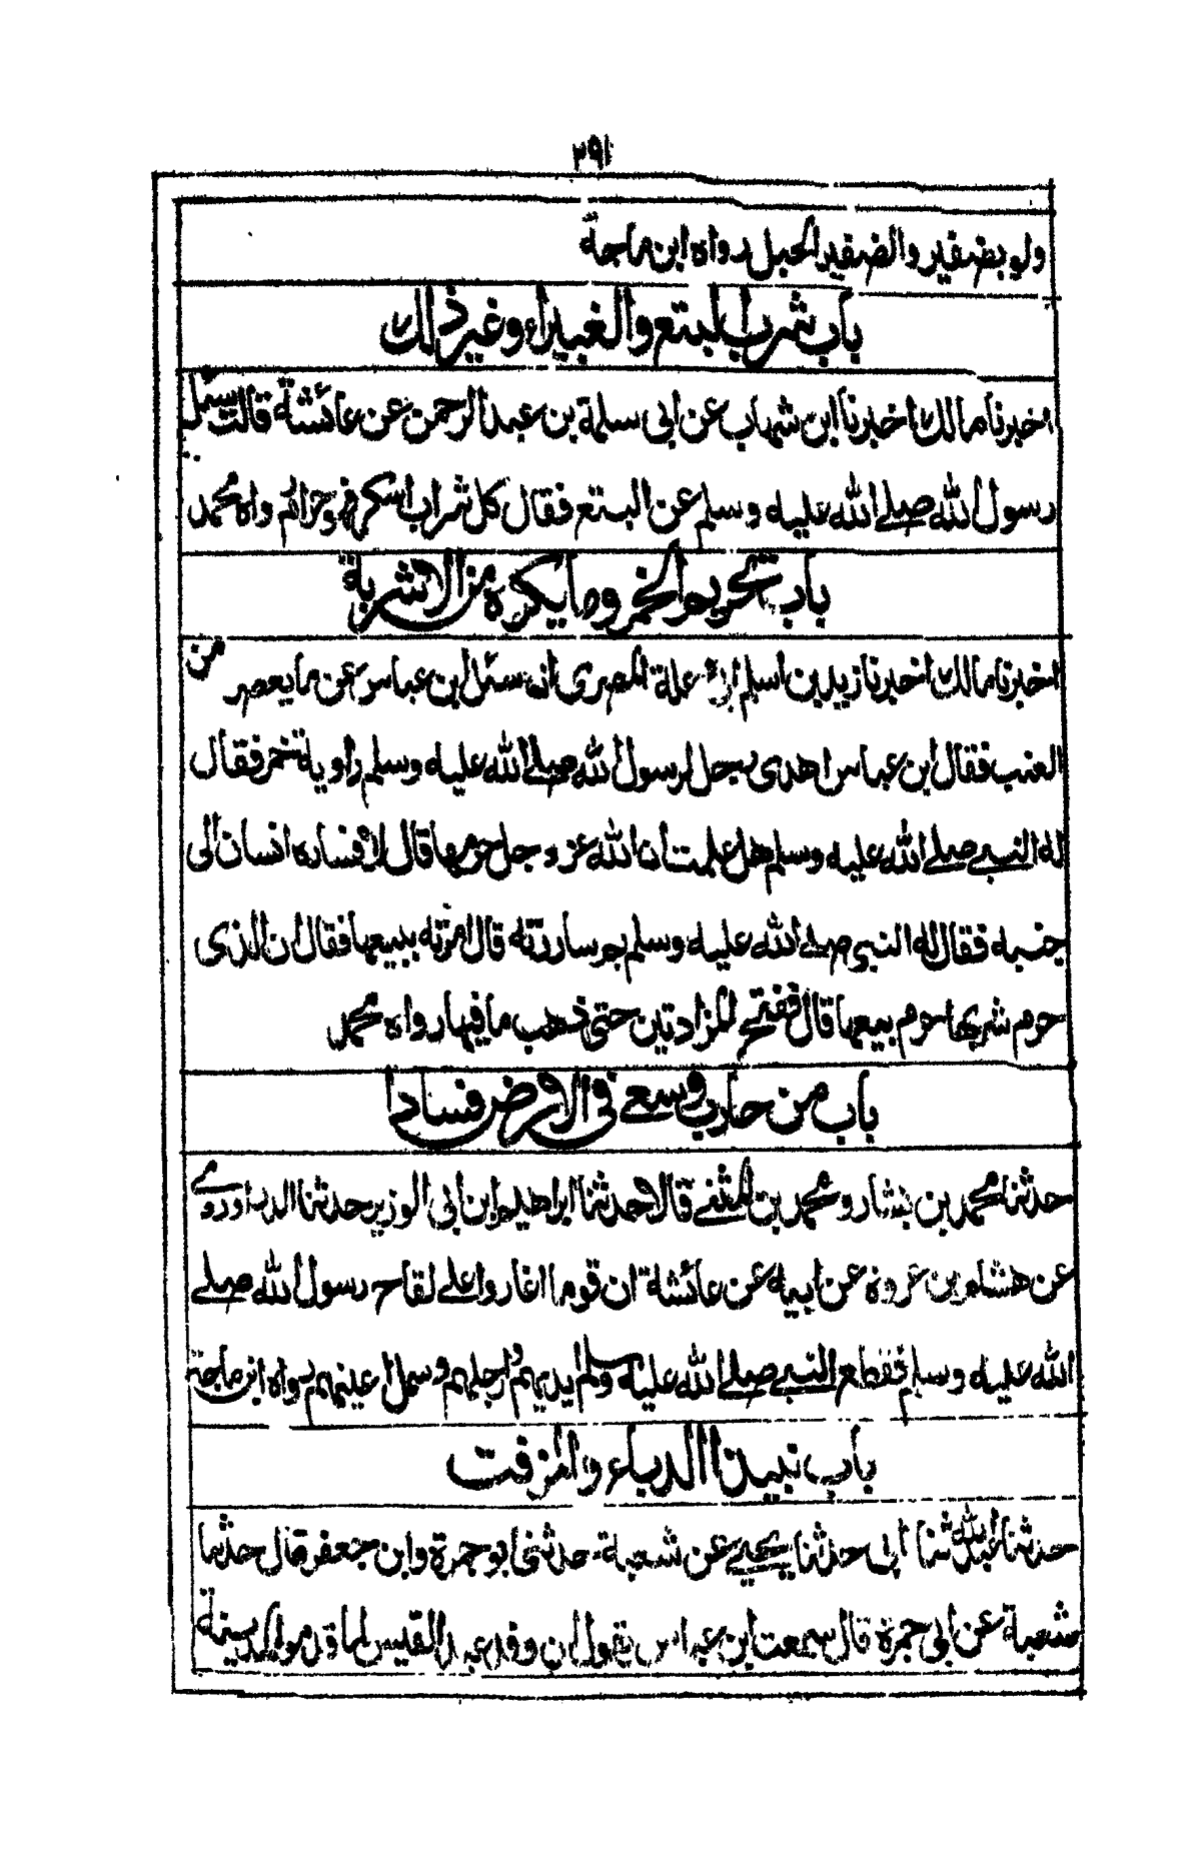 ٢٩١
ولو بضفير والضفير الحبل رواه ابن ماجة
باب شرب البتع والغبيراء وغير ذلك
اخبرنا مالك اخبرنا ابن شهاب عن ابي سلمة بن عبد الرحمن عن عائشة قالت سئل
رسول الله صلے الله عليه وسلم عن البتع فقال كل شراب اسكر فهو حرام رواه محمد
باب تحريم الخمر وما يكره من الاشربة
اخبرنا مالك اخبرنا زيد بن اسلم عن وعلة المصرى انه سئل ابن عباس عن ما يعصر من
العنب فقال ابن عباس اهدى رجل لرسول الله صلے الله عليه وسلم راوية خمر فقال
له النبي صلے الله عليه وسلم هل علمت ان الله عز وجل حرمها قال لا فساره انسان الى
جنبه فقال له النبي صلے الله عليه وسلم بم ساررته قال امرته ببيعها فقال ان الذى
حرم شربها حرم بيعها قال ففتح المزادتين حتى ذهب ما فيها رواه محمد
باب من حارب وسعى فى الارض فسادا
حدثنا محمد بن بشار ومحمد بن المثنے قالا حدثنا ابراهيم ابن ابي الوزير حدثنا الدراوردي
عن هشام بن عروة عن ابيه عن عائشة ان قوما اغاروا علے لقاح رسول الله صلے
الله عليه وسلم فقطع النبي صلے الله عليه وسلم ايديهم وارجلهم وسمل اعينهم رواه ابن ماجة
باب نبيذ الدباء والمزفت
حدثنا عبد الله ثنا ابى حدثنا يحيے عن شعبة حدثنى ابو جمرة وابن جعفر قال حدثنا
شعبة عن ابى جمرة قال سمعت ابن عباس يقول ان وفد عبد القيس لما قدموا المدينة